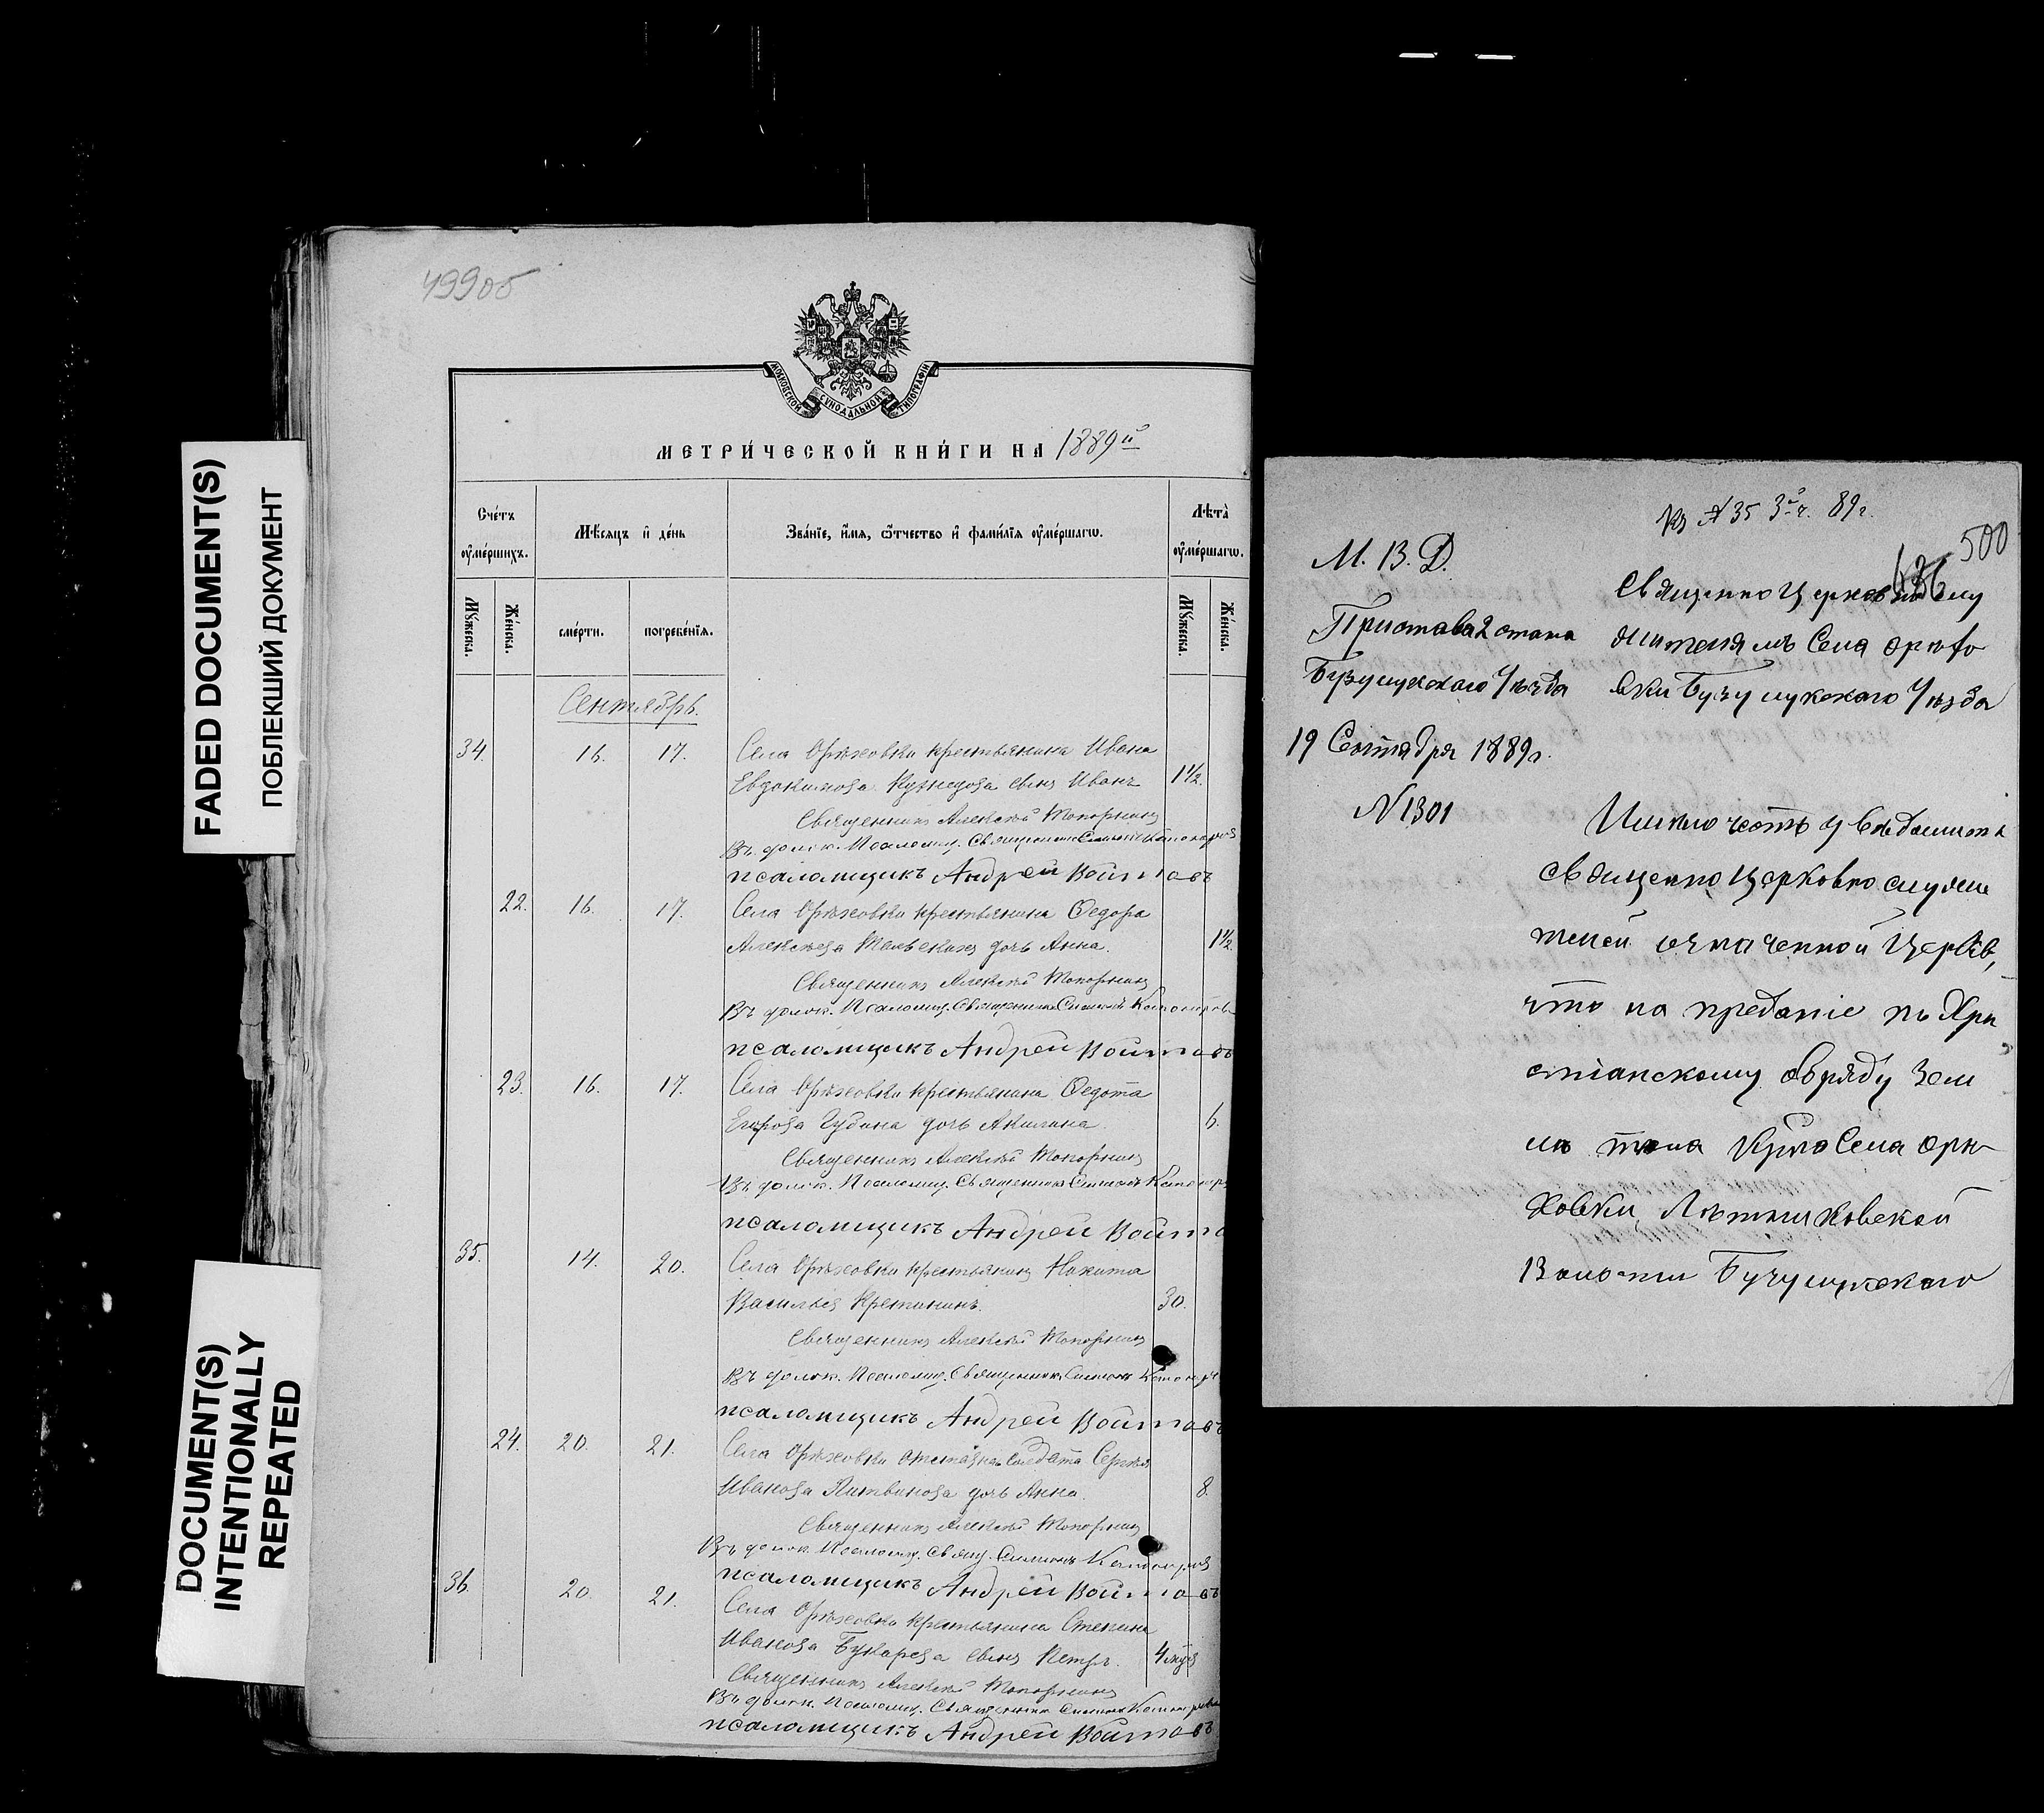 FADED DOCUMENT(S)
ПОБЛЕКШИЙ ДОКУМЕНТ
DOCUMENT(S)
INTENTIONALLY
REPEATED
499об
МОСКОВСКОЙ СѴНОДАЛЬНОЙ ТИПОГРАФІИ
МЕТРИ́ЧЕСКОЙ КНИ́ГИ НА 1889й
Сче́тъ ᲂу҆ме́ршихъ.
Мѣ́сяцъ и҆ де́нь
Зва́нїе, и҆́мя, ѻ҆́тчество и҆ фами́лїя ᲂу҆ме́ршагѡ.
Лѣ́та̀ ᲂу҆ме́ршагѡ.
Мꙋ́жеска.
Же́нска.
сме́рти.
погребе́нїя.
Мꙋ́жеска.
Же́нска.
Сентябрь.
34. 16. 17. Села Орѣховки крестьянина Ивана
Евдокимова Кузнецова сынъ Иванъ 1½.
Священникъ Алексѣй Топорнинъ
Въ должн. Псаломщ. Священникъ Симеонъ
псаломщикъ Андрей Войтовъ
22. 16. 17. Села Орѣховки крестьянина Ѳедора
Алексѣева дочь Анна. 1½.
Священникъ Алексѣй Топорнинъ
Въ должн. Псаломщ. Священникъ Симеонъ
псаломщикъ Андрей Войтовъ
23. 16. 17. Села Орѣховки крестьянина Ѳедота
Егорова Губина дочь Акилина. 6.
Священникъ Алексѣй Топорнинъ
Въ должн. Псаломщ. Священникъ Симеонъ
псаломщикъ Андрей Войто
35. 14. 20. Села Орѣховки крестьянинъ Никита
Васильевъ Кретининъ. 30.
Священникъ Алексѣй Топорнинъ
Въ должн. Псаломщ. Священникъ Симеонъ
псаломщикъ Андрей Войтовъ
24. 20. 21. Села Орѣховки солдата Сергѣя
Иванова Литвинова дочь Анна. 8.
Священникъ Алексѣй Топорнинъ
Въ должн. Псаломщ. Свящ. Симеонъ
псаломщикъ Андрей Войтовъ
36. 20. 21. Села Орѣховки крестьянина Степана
Иванова Бухарева сынъ Петръ. 4
Священникъ Алексѣй Топорнинъ
Въ должн. Псаломщ. Священникъ Симеонъ
псаломщикъ Андрей Войтовъ
Къ № 35 3й ч. 89г.
500
М. В. Д.
Пристава 2 стана
Бузулукскаго Уѣзда
19 Сентября 1889г.
N 1301
Священно Церковно слу
жителямъ Села Орѣхо
вки Бузулукскаго Уѣзда
Имѣю честь увѣдомить
священно церковно служи
телей означенной Церкви,
что на преданіе по Хри
стіанскому обряду Зем
лѣ тѣла Села Орѣ
ховки, Лѣтниковской
Волости Бузулукскаго